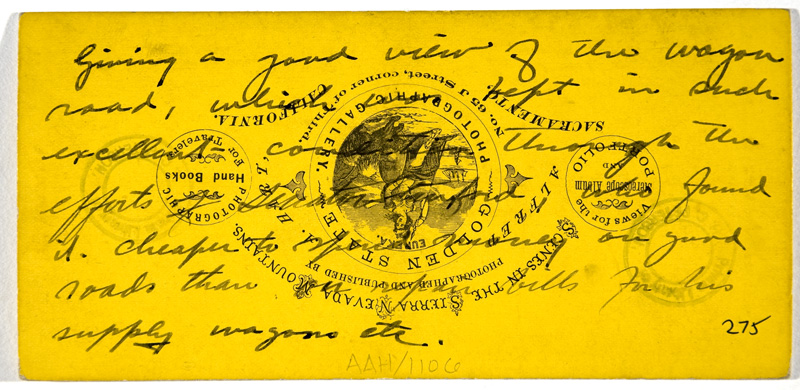 Giving a good view of the wagon
road, which is kept in such
excellent condition through the
efforts of Stanford who found
it cheaper to spend money on good
roads than on repair bills for his
supply wagons etc.
275
AAH/1106
SCENES IN THE SIERRA NEVADA MOUNTAINS,
PHOTOGRAPHED AND PUBLISHED BY
ALFRED A. HART,
GOLDEN STATE PHOTOGRAPHIC GALLERY,
EUREKA
No. 65 J Street, corner of Third,
SACRAMENTO CALIFORNIA.
Views for the
Stereoscope Album
AND
PORTFOLIO
PHOTOGRAPHIC
Hand Books
For Travelers